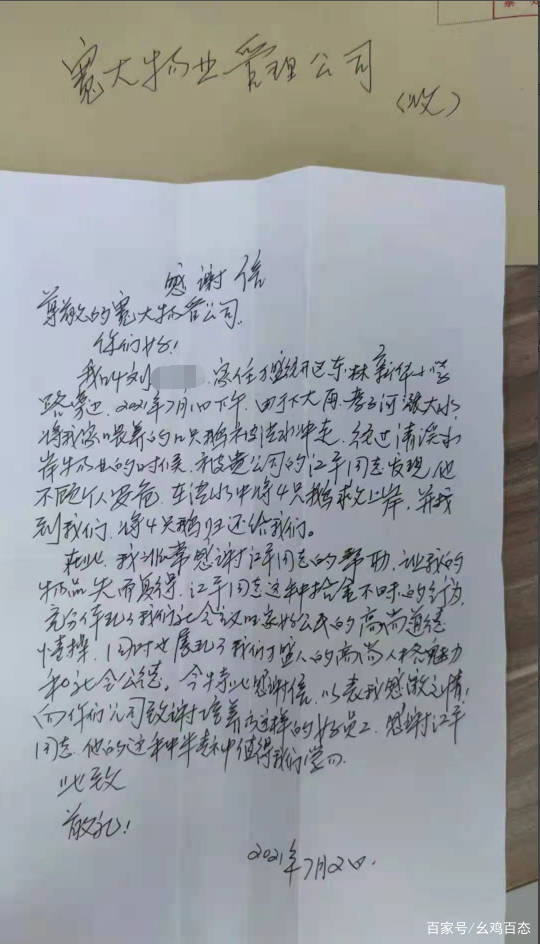 宽大物业管理公司
(收)
感谢信
尊敬的宽大物管公司
你们好!
我叫刘 家住万盛经开区东林新华小学
路旁边,2021年7月1日下午,由于下大雨,孝子河涨大水,
将我家喂养的 只鹅被洪水冲走,经过清溪水
岸物业的时候,被贵公司的江平同志发现,他
不顾个人安危,在洪水中将4只鹅救上岸,并找
到我们,将4只鹅归还给我们。
在此,我非常感谢江平同志的帮助,让我的
物品失而复得,江平同志这种拾金不昧的行为,
充分体现了我们社会主义国家好公民的高尚道德
情操,同时也展现了我们万盛人的高尚人格魅力
和社会公德。今特此感谢信,以表我感激之情!
向你们公司致谢培养了这样的好员工,感谢江平
同志,他的这种精神值得我们学习
此致
敬礼!
2021年7月2日.
百家号/幺鸡百态